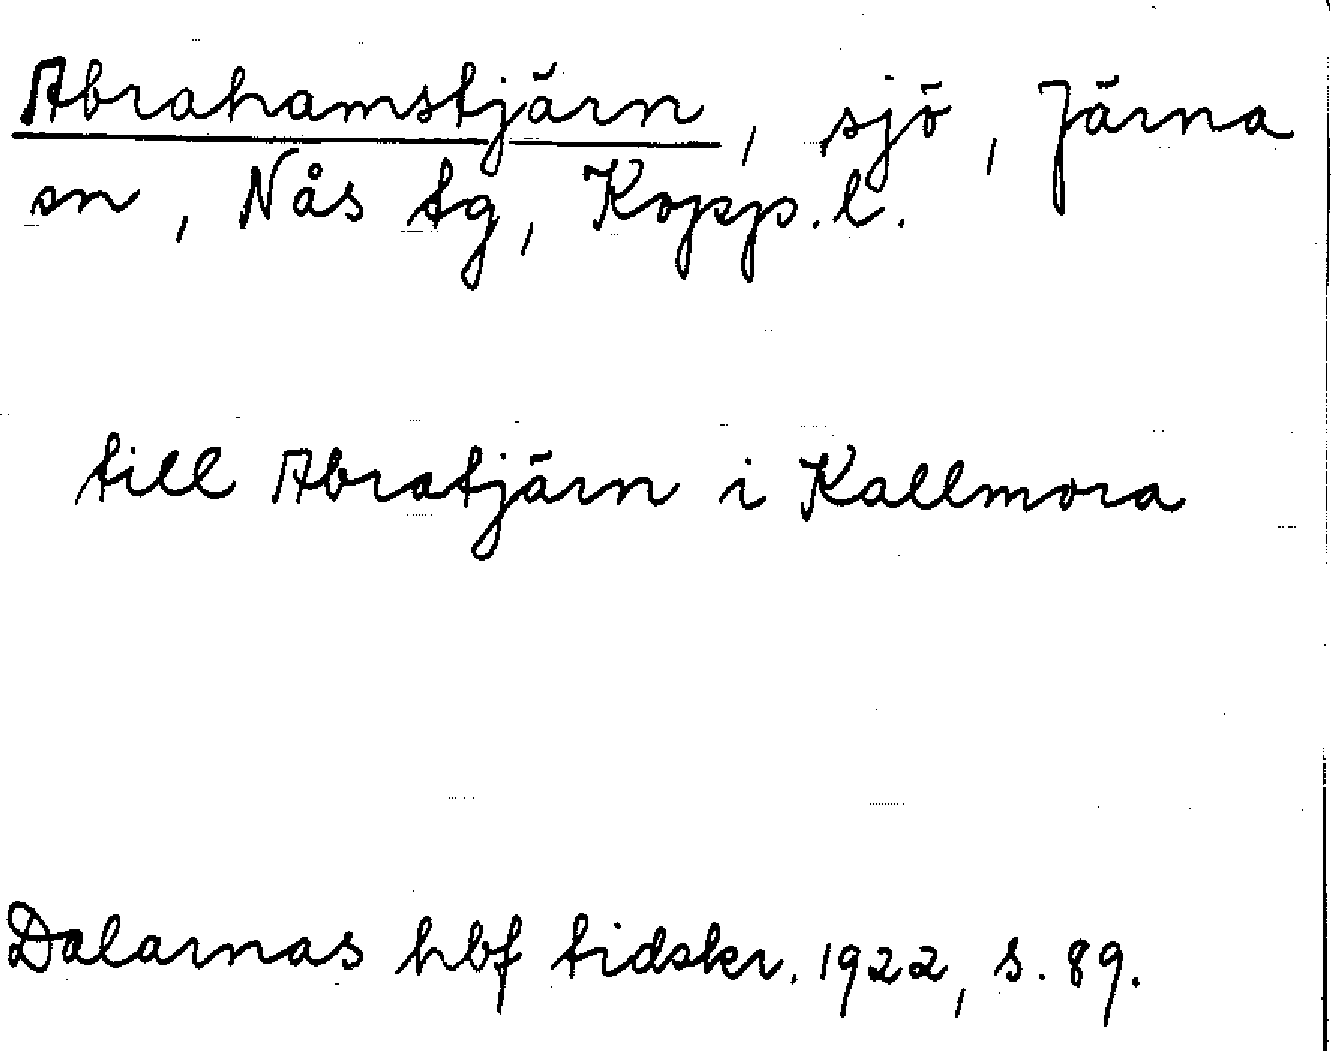 Abrahamstjärn, sjö, Järna
sn, Nås tg, Kopp. l.
till Abratjärn i Kallmora
Dalarnas hbf tidskr. 1922, s. 89.